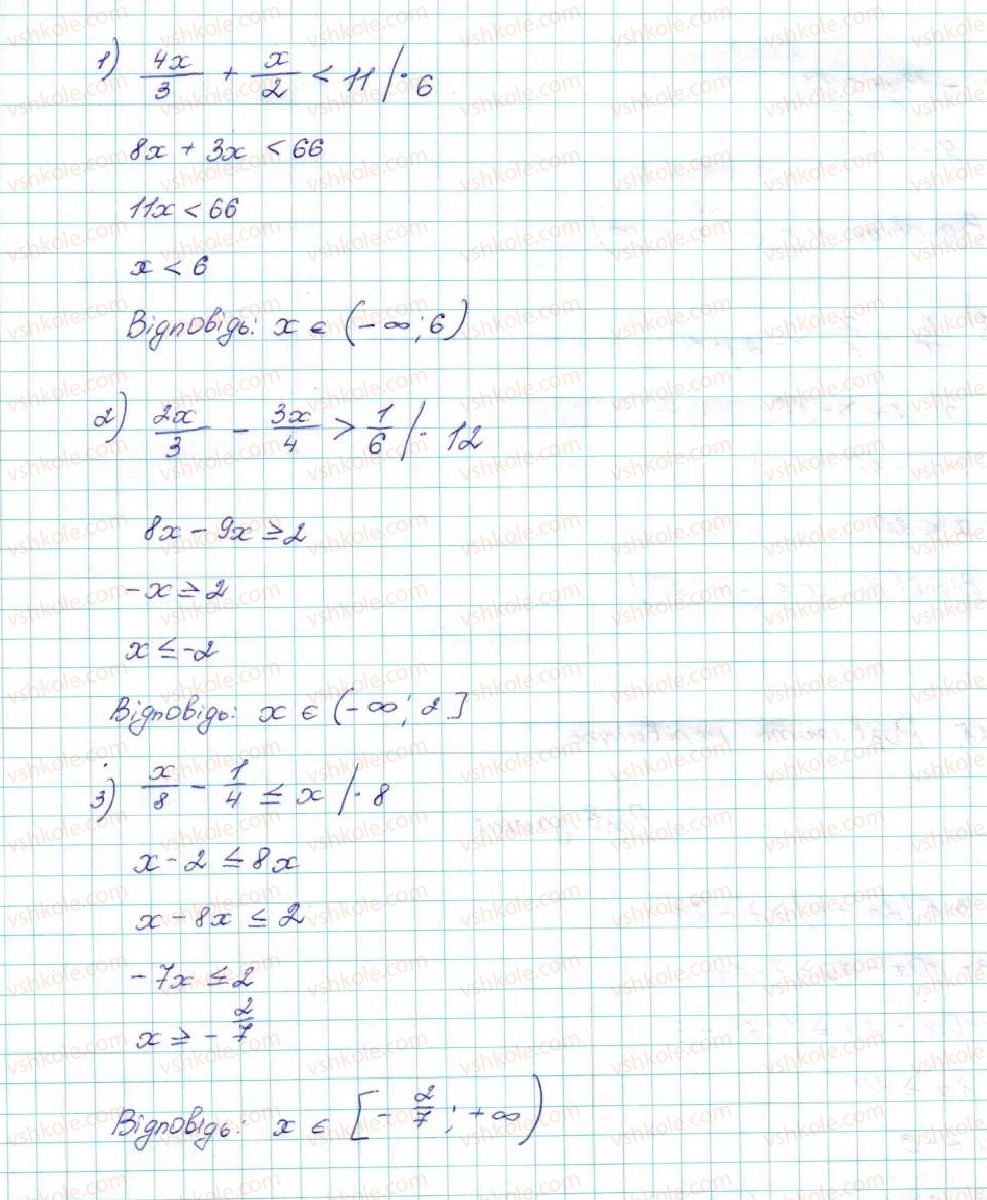 1) 4x/3 + x/2 < 11 | · 6
8x + 3x < 66
11x < 66
x < 6
Відповідь: x ∈ (-∞; 6)
2) 2x/3 - 3x/4 > 1/6 | · 12
8x - 9x ≥ 2
-x ≥ 2
x ≤ -2
Відповідь: x ∈ (-∞; 2]
3) x/8 - 1/4 ≤ x | · 8
x - 2 ≤ 8x
x - 8x ≤ 2
-7x ≤ 2
x ≥ - 2/7
Відповідь: x ∈ [- 2/7; +∞)
vshkole.com